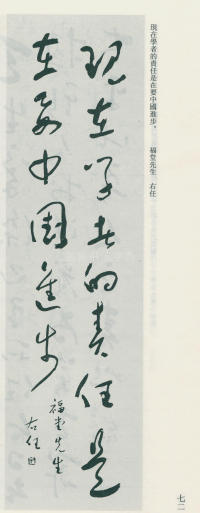 現在學者的責任是在要中國進步。　福堂先生　右任
現在学者的责任是
在要中國進步
福堂先生
右任
七二